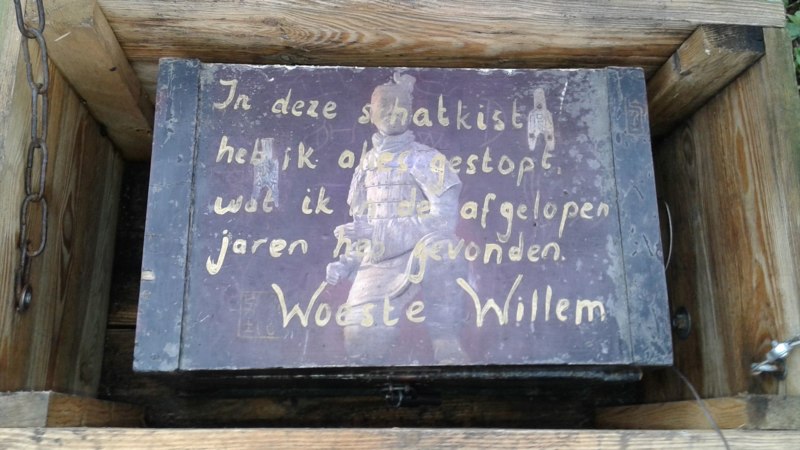 In deze schatkist
heb ik alles gestopt,
wat ik in de afgelopen
jaren heb gevonden.
Woeste Willem